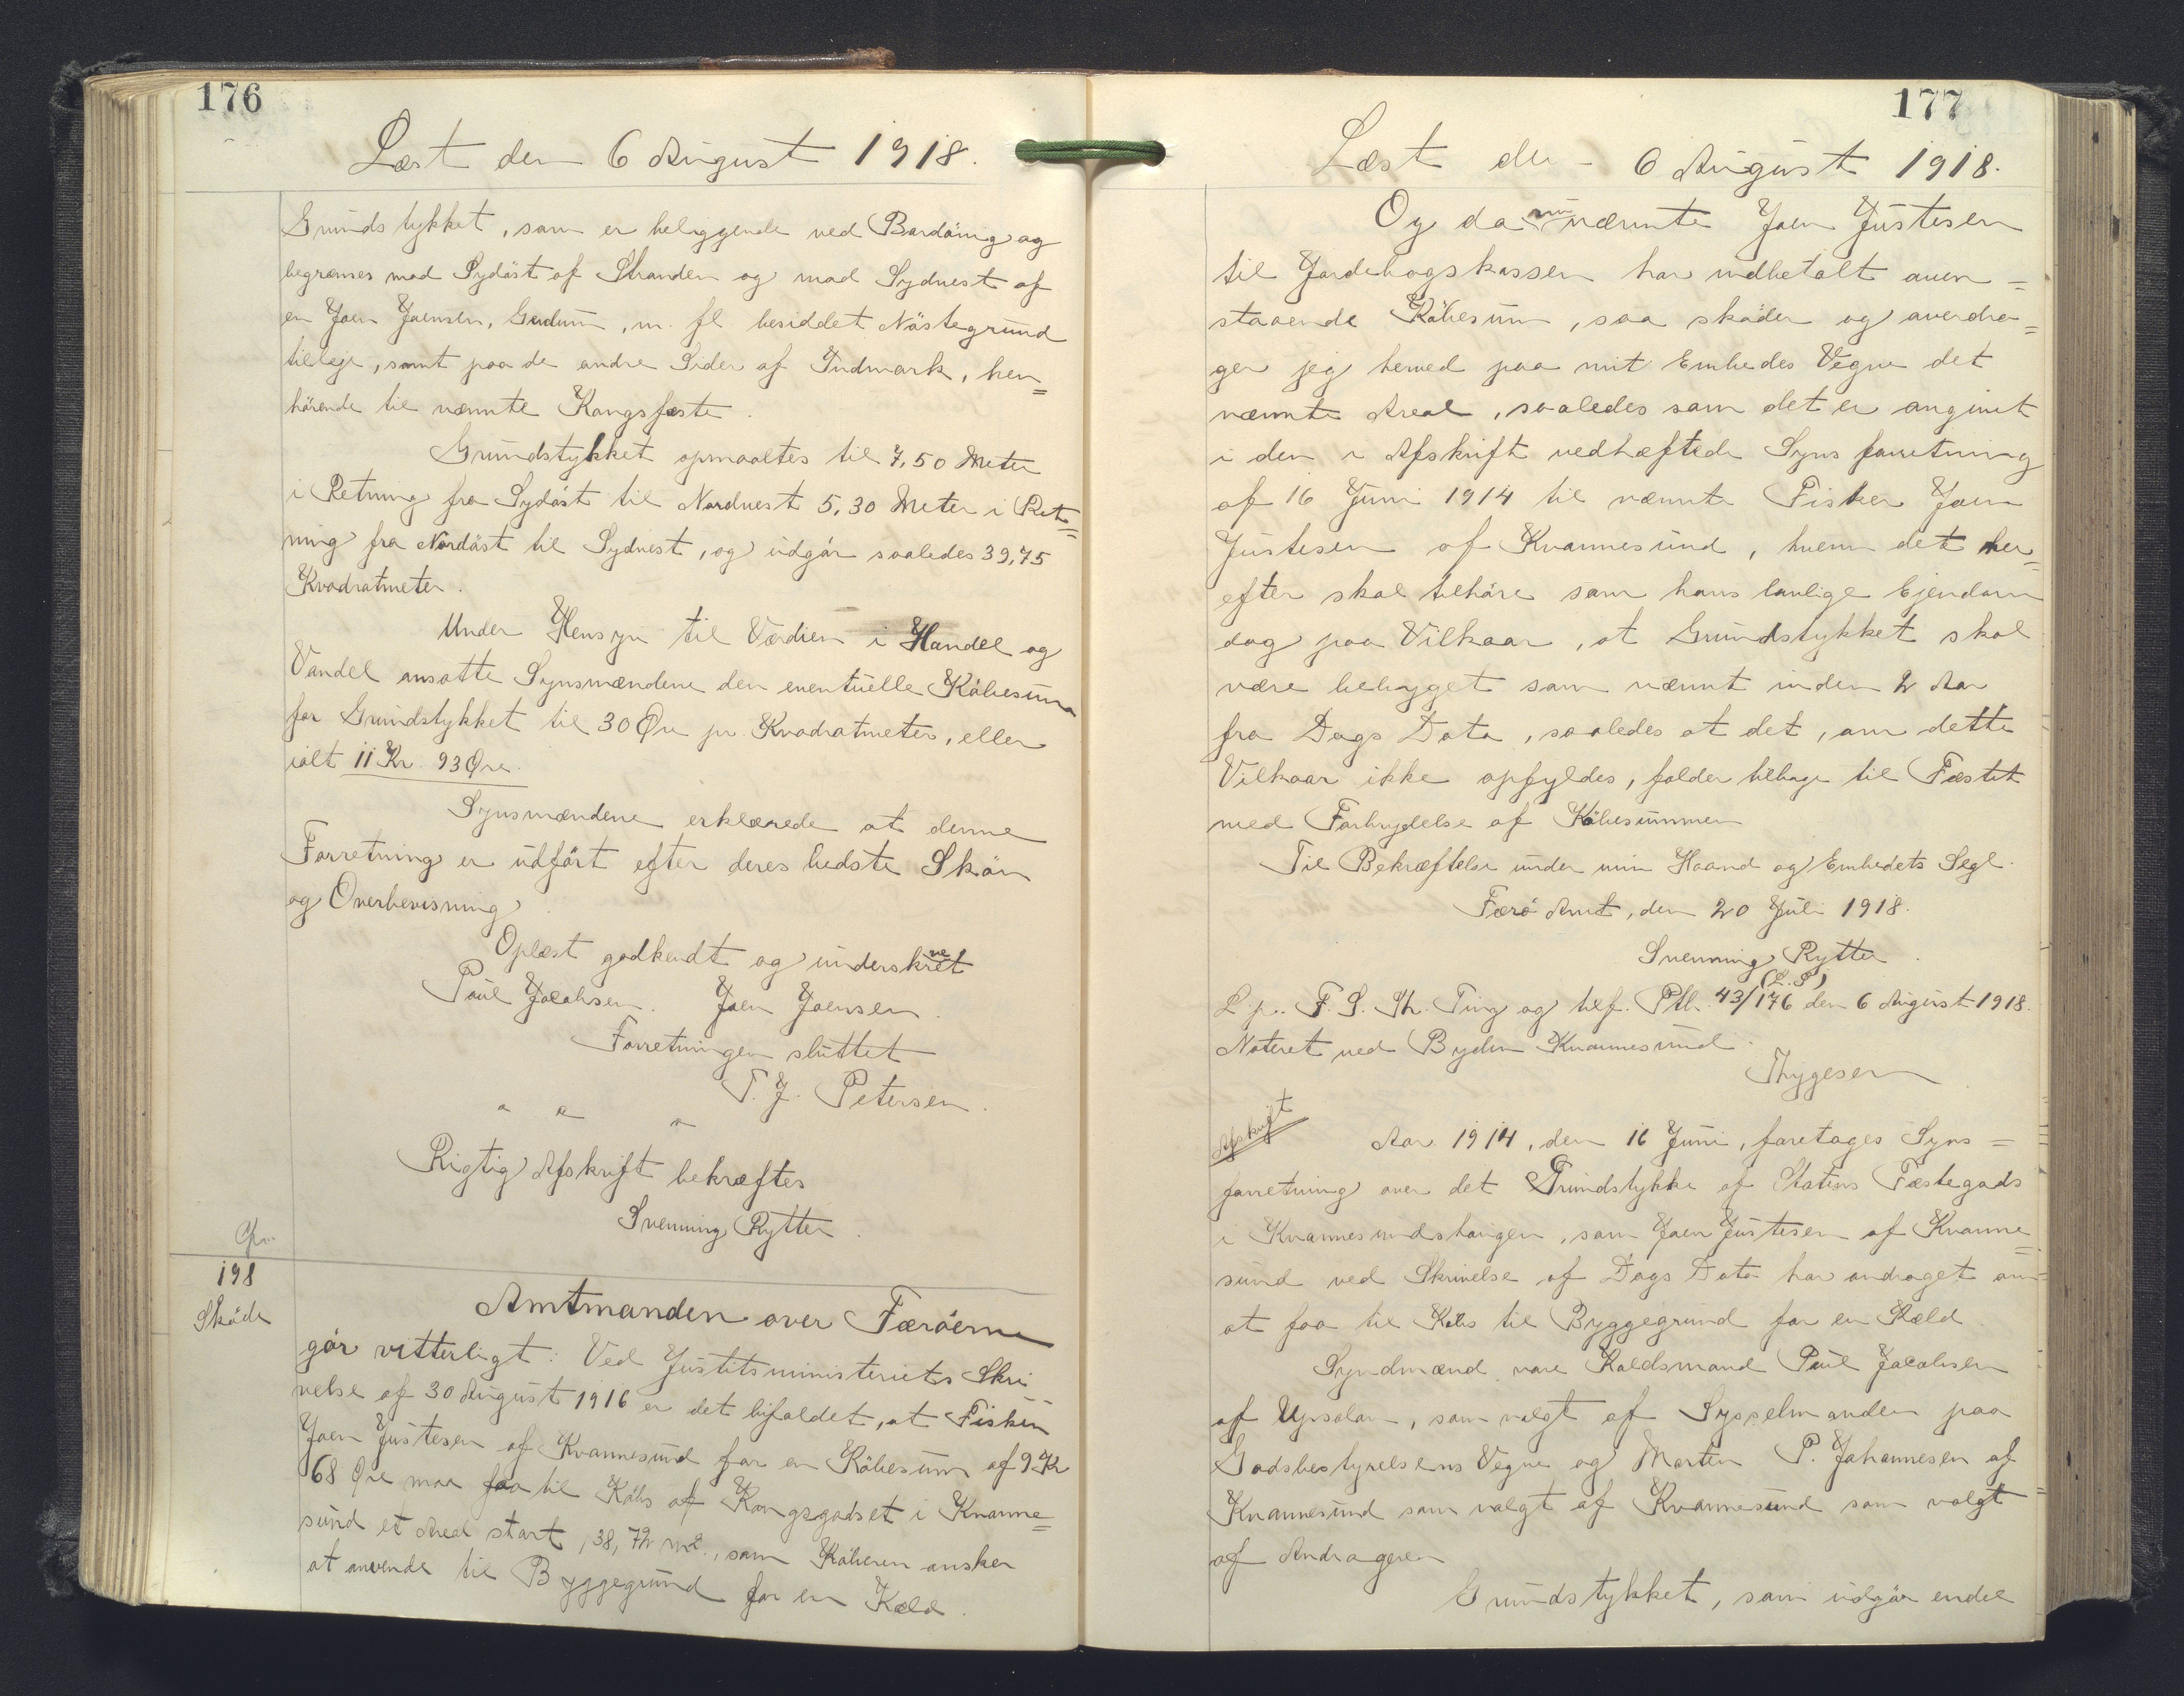 176
Læst den 6 August 1918.
Grundstykket, som er beliggende ved Bordöing og
begrænses mod Sydöst af Stranden og mod Sydvest af
en Joen Joensen, Gudum, m. fl besiddet Nöstegrund
tilleje, samt paa de andre Sider af Indmark, hen=
hörende til nævnte Kongsfæste.
Grundstykket opmaaltes til 7,50 Meter
i Retning fra Sydöst til Nordvest 5,30 Meter i Ret=
ning fra Nordöst til Sydvest, og udgör saaledes 39,75
Kvadratmeter.
Under Hensyn til Værdien i Handel og
Vandel ansatte Synsmændene den eventuelle Köbesum
for Grundstykket til 30 Øre pr. Kvadratmeter, eller
ialt 11 Kr. 93 Øre.
Synsmændene erklærede at denne
Forretning er udfört efter deres bedste Skön
og Overbevisning.
Oplæst godkendt og underskrevet
Poul Jacobsen. Joen Joensen.
Forretningen sluttet
T. J. Petersen.
" " "
Rigtig Afskrift bekræftes
Svenning Rytter.
Gr.
198
Sköde
Amtmanden over Færöerne
gör vitterligt: Ved Justitsministeriets Skri
velse af 30 August 1916 er det bifaldet, at Fisker
Joen Justesen af Kvannesund for en Köbesum af 9 Kr
68 Øre maa faa til Köbs af Kongsgodset i Kvanne=
sund et Areal stort, 38,72 m2., som Köberen ønsker
at anvende til Byggegrund for en Kæld.
177
Læst den 6 August 1918.
Og da nu nævnte Joen Justesen
til Jordebogskassen har indbetalt oven=
staaende Köbesum, saa sköder og overdra=
ger jeg herved paa mit Embedes Vegne det
nævnte Areal, saaledes som det er angivet
i den i Afskrift vedhæftede Synsforretning
af 16 Juni 1914 til nævnte Fisker Joen
Justesen af Kvannesund, hvem det her=
efter skal tilhöre som hans lovlige Ejendom
dog paa Vilkaar, at Grundstykket skal
være bebygget som nævnt inden 2 Aar
fra Dags Dato, saaledes at det, om dette
Vilkaar ikke opfyldes, falder tilbage til Fæstet
med Forbrydelse af Köbesummen
Til Bekræftelse under min Haand og Embedets Segl.
Færö Amt, den 20 Juli 1918.
Svenning Rytter.
(L.S)
L. p. F. S. Th. Ting og tilf. Ptl. 43/176 den 6 August 1918.
Noteret ved Bygden Kvannesund.
Thygesen
Afskrift
Aar 1914, den 16 Juni, foretages Syns=
forretning over det Grundstykke af Statens Fæstegods
i Kvannesundshaugen, som Joen Justesen af Kvanne=
sund ved Skrivelse af Dags Dato har andraget om
at faa til Köbs til Byggegrund for en Kæld.
Syndmænd vare Raadsmand Poul Jacobsen
af Upsalar, som valgt af Sysselmanden paa
Godsbestyrelsens Vegne og Morten P. Johannesen af
Kvannesund som valgt af Kvannesund som valgt
af Andrageren
Grundstykket, som udgör endel